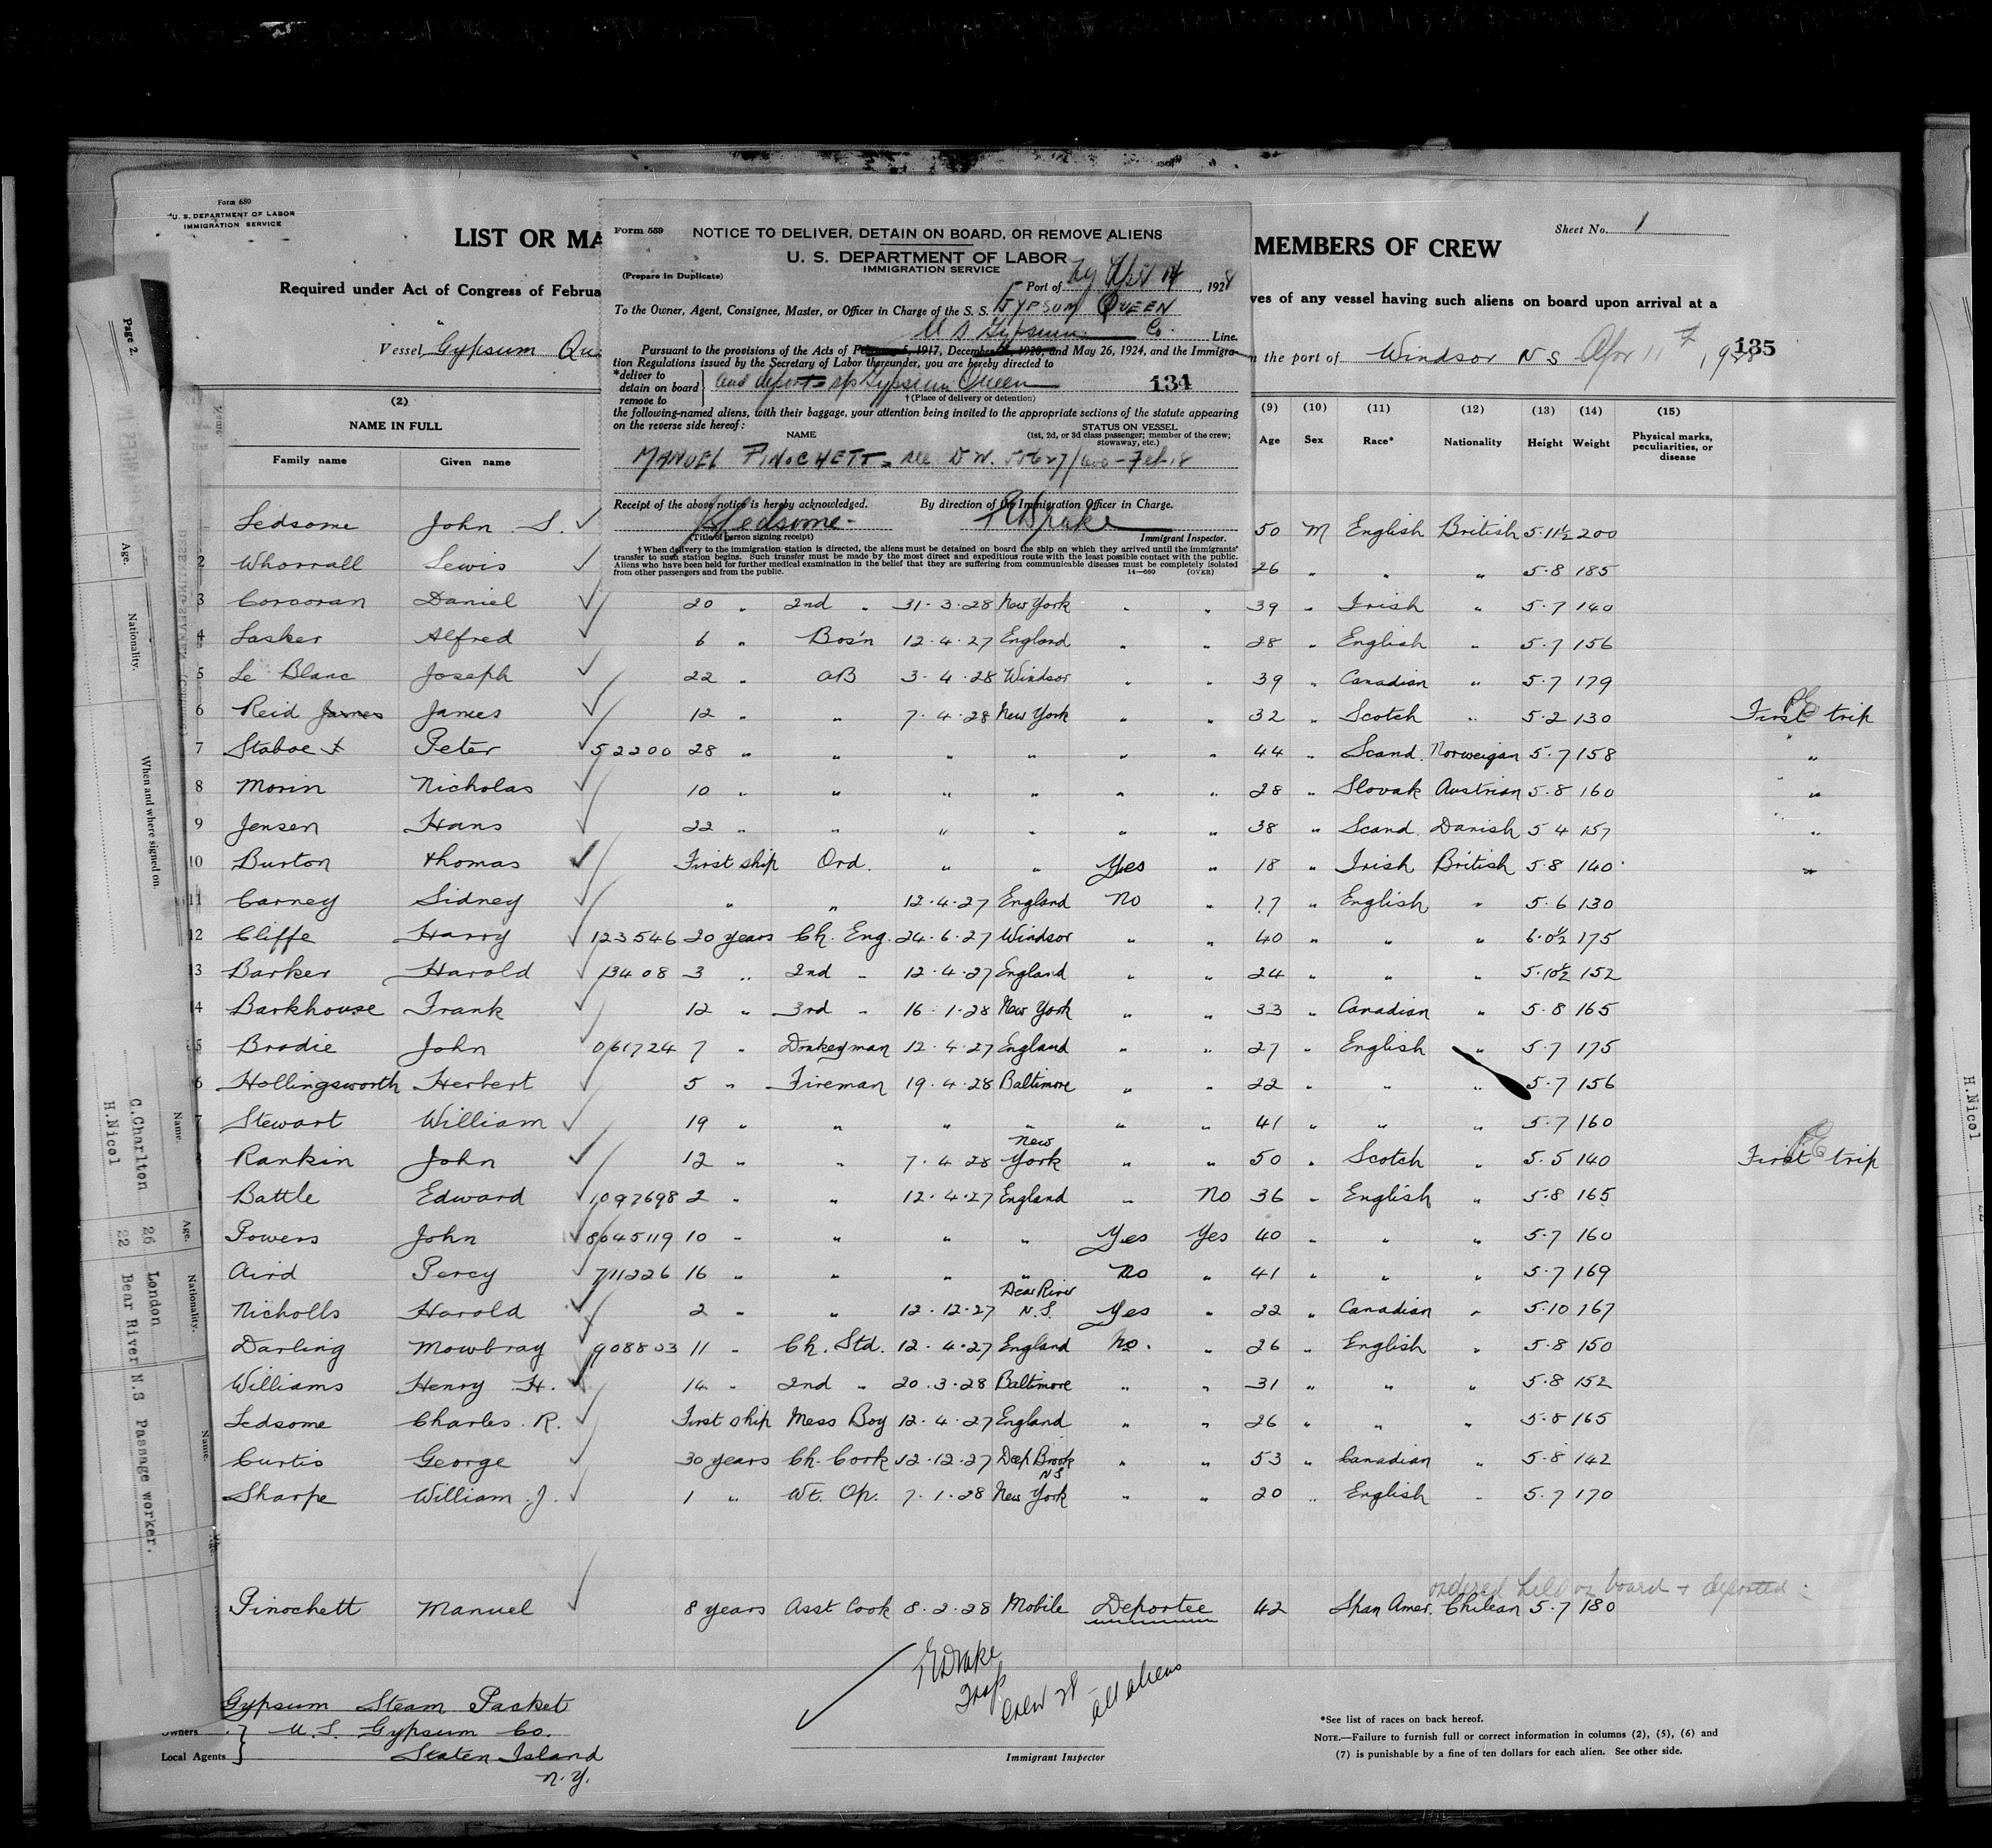 Form 680
U. S. DEPARTMENT OF LABOR
IMMIGRATION SERVICE
LIST OR MA
MEMBERS OF CREW
Sheet No. 1
Required under Act of Congress of Februa
ves of any vessel having such aliens on board upon arrival at a
Vessel Gypsum Qu
n the port of Windsor N S Apr 11
135
Form 559
NOTICE TO DELIVER, DETAIN ON BOARD, OR REMOVE ALIENS
U. S. DEPARTMENT OF LABOR
IMMIGRATION SERVICE
(Prepare in Duplicate)
Port of NY Apr 14, 1928
To the Owner, Agent, Consignee, Master, or Officer in Charge of the S. S. GYPSUM QUEEN
U S Gypsum Co. Line.
Pursuant to the provisions of the Acts of February 5, 1917, December 26, 1920, and May 26, 1924, and the Immigra-
tion Regulations issued by the Secretary of Labor thereunder, you are hereby directed to
*deliver to
detain on board and deport s/s Gypsum Queen 134
remove to † (Place of delivery or detention)
the following-named aliens, with their baggage, your attention being invited to the appropriate sections of the statute appearing
on the reverse side hereof:
NAME STATUS ON VESSEL
(1st, 2d, or 3d class passenger; member of the crew;
stowaway, etc.)
MANUEL PINOCHETT
Receipt of the above notice is hereby acknowledged. By direction of the Immigration Officer in Charge.
Ledsome
(Title of person signing receipt) Immigrant Inspector.
† When delivery to the immigration station is directed, the aliens must be detained on board the ship on which they arrived until the immigrants'
transfer to such station begins. Such transfer must be made by the most direct and expeditious route with the least possible contact with the public.
Aliens who have been held for further medical examination in the belief that they are suffering from communicable diseases must be completely isolated
from other passengers and from the public. 14—660 (OVER)
(2) (9) (10) (11) (12) (13) (14) (15)
NAME IN FULL Age Sex Race* Nationality Height Weight Physical marks, peculiarities, or disease
Family name Given name
Ledsome John S. 50 M English British 5·11½ 200
2 Whorrall Lewis 26 " " " 5·8 185
3 Corcoran Daniel 20 " 2nd " 31·3·28 New York " " 39 " Irish " 5·7 140
4 Lasker Alfred 6 " Bos'n 12·4·27 England " " 28 " English " 5·7 156
5 Le Blanc Joseph 22 " AB 3·4·28 Windsor " " 39 " Canadian " 5·7 179
6 Reid James James 12 " " 7·4·28 New York " " 32 " Scotch " 5·2 130 First trip
7 Staboe Peter 52200 28 " " " " " " 44 " Scand. Norweigan 5·7 158 "
8 Morin Nicholas 10 " " " " " " 28 " Slovak Austrian 5·8 160 "
9 Jensen Hans 22 " " " " " " 38 " Scand. Danish 5 4 157 "
10 Burton Thomas First ship Ord. " " Yes " 18 " Irish British 5·8 140 "
11 Carney Sidney " " 12·4·27 England No " 17 " English " 5·6 130
12 Cliffe Harry 123546 20 years Ch. Eng. 24·6·27 Windsor " " 40 " " " 6·0½ 175
13 Barker Harold 13408 3 " 2nd " 12·4·27 England " " 24 " " " 5·10½ 152
14 Barkhouse Frank 12 " 3rd " 16·1·28 New York " " 33 " Canadian " 5·8 165
5 Brodie John 061724 7 " Donkeyman 12·4·27 England " " 27 " English " 5·7 175
6 Hollingsworth Herbert 5 " Fireman 19·4·28 Baltimore " " 22 " " " 5·7 156
7 Stewart William 19 " " " " " " 41 " " " 5·7 160
Rankin John 12 " " 7·4·28 New York " " 50 " Scotch " 5·5 140 First trip
Battle Edward 1097698 2 " " 12·4·27 England " No 36 " English " 5·8 165
Powers John 8045119 10 " " " " Yes Yes 40 " " " 5·7 160
Aird Percy 711226 16 " " " " No " 41 " " " 5·7 169
Nicholls Harold 2 " " 12·12·27 Bear River N.S. Yes " 22 " Canadian " 5·10 167
Darling Mowbray 908803 11 " Ch. Std. 12·4·27 England No. " 26 " English " 5·8 150
Williams Henry H. 14 " 2nd " 20·3·28 Baltimore " " 31 " " " 5·8 152
Ledsome Charles R. First ship Mess Boy 12·4·27 England " " 26 " " " 5·8 165
Curtis George 30 years Ch. Cook 12·12·27 Deep Brook N S " " 53 " Canadian " 5·8 142
Sharpe William J. 1 " Wt. Op. 7·1·28 New York " " 20 " English " 5·7 170
ordered held on board + deported
Pinochett Manuel 8 years Asst Cook 8·2·28 Mobile Deportee 42 Span Amer. Chilean 5·7 180
Drake
Insp
Crew 28
all aliens
Gypsum Steam Packet
Owners U. S. Gypsum Co.
Local Agents Staten Island
N.Y.
Immigrant Inspector
*See list of races on back hereof.
NOTE.—Failure to furnish full or correct information in columns (2), (5), (6) and
(7) is punishable by a fine of ten dollars for each alien. See other side.
Page 2.
Name
Age.
Nationality.
When and where signed on.
Name. Age. Nationality. Name.
C.Charlton 26 London
H.Nicol 22 Bear River N.S Passage worker.
H.Nicol